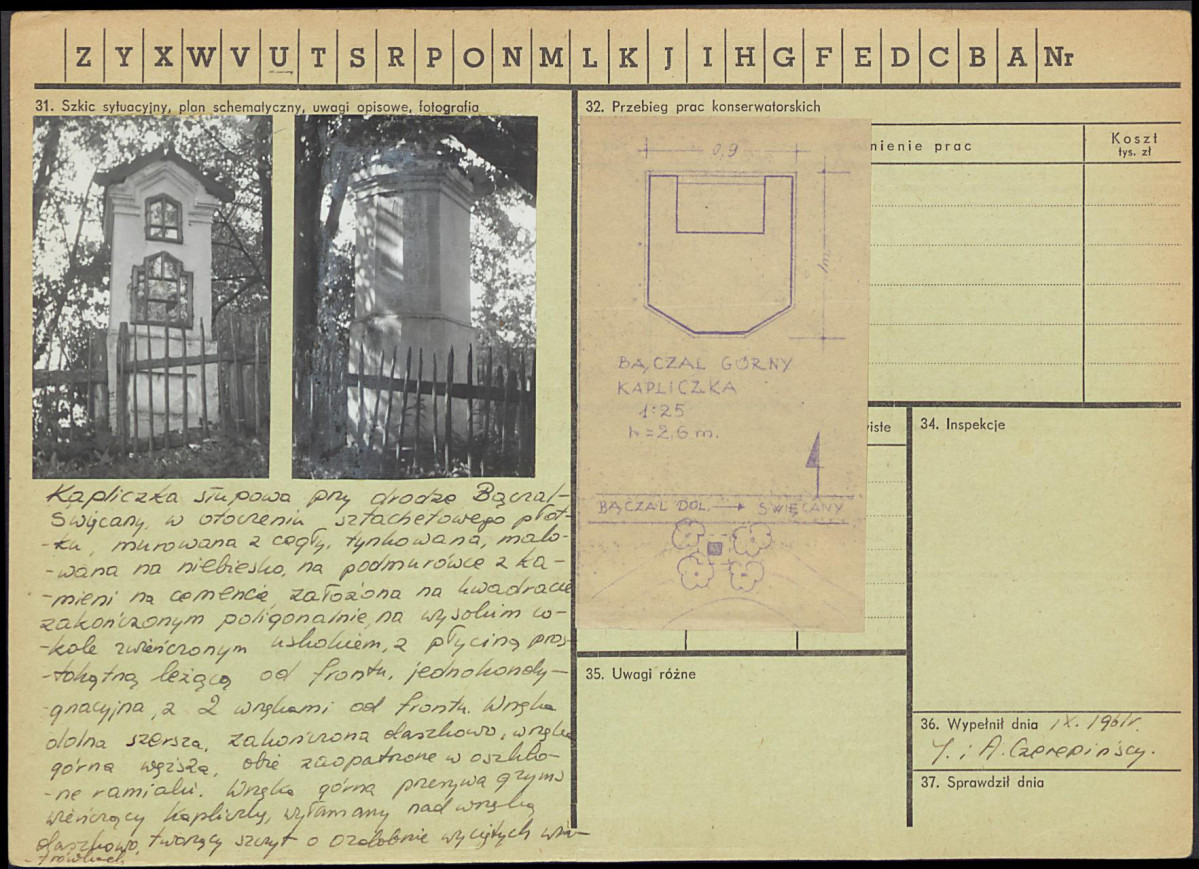 Z Y X W V U T S R P O N M L K J I H G F E D C B A Nr
31. Szkic sytuacyjny, plan schematyczny, uwagi opisowe, fotografia
Kapliczka słupowa przy drodze Bączal-
Święcany, w otoczeniu sztachetowego płot-
-ku, murowana z cegły, tynkowana, malo-
-wana na niebiesko, na podmurówce z ka-
-mieni na cemencie założona na kwadracie
zakończonym poligonalnie, na wysokim co-
-kole zwieńczonym uskokiem, z płyciną pros-
-tokątną leżącą od frontu, jednokondy-
-gnacyjna, z 2 wnękami od frontu. Wnęka
dolna szersza, zakończona daszkowo, wnęka
górna węższa, obie zaopatrzone w oszklo-
-ne ramiaki. Wnęka górna przerywa gzyms
wieńczący kapliczki, wyłamany nad wnęką
daszkowo, tworzący szczyt o ozdobnie wyciętych
32. Przebieg prac konserwatorskich
nienie prac
Koszt
tys. zł
0,9
1m
BĄCZAL GÓRNY
KAPLICZKA
1:25
h = 2,6 m.
BĄCZAL DOL. → ŚWIĘCANY
iste
34. Inspekcje
35. Uwagi różne
36. Wypełnił dnia IX. 1961r.
J. i A. Czerepińscy.
37. Sprawdził dnia